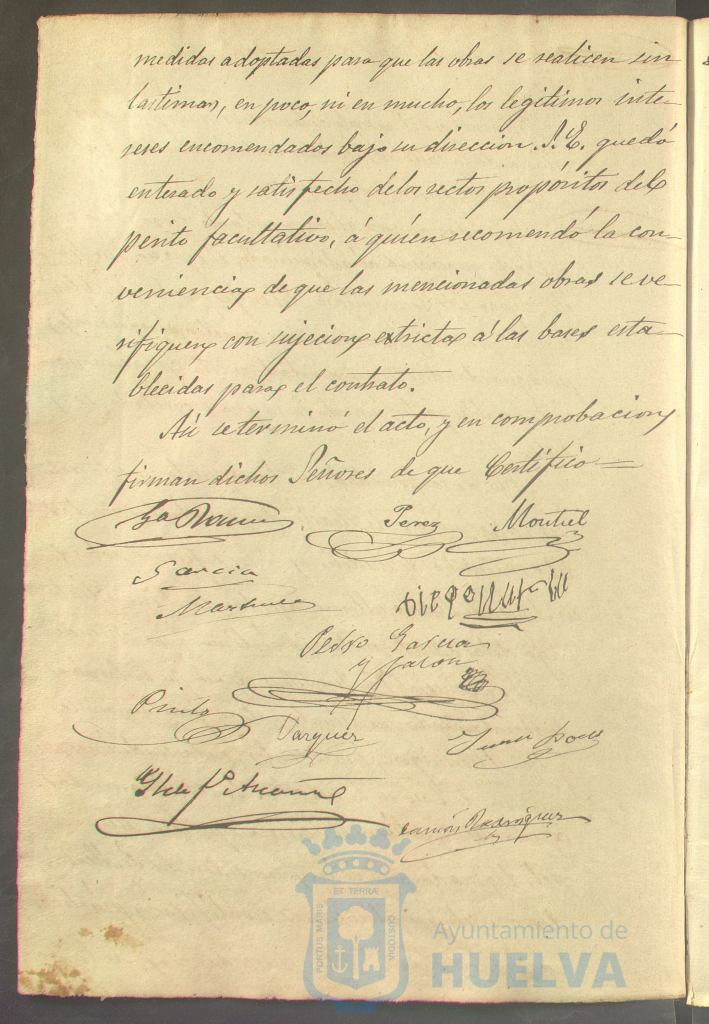 medidas adoptadas para que las obras se realicen sin
lastimar, en poco, ni en mucho, los legítimos inte-
reses encomendados bajo su dirección. S. E. quedó
enterado y satisfecho de los rectos propósitos del
perito facultativo, á quien recomendó la con-
veniencia de que las mencionadas obras se ve-
rifiquen con sujecion extricta á las bases esta-
blecidas para el contrato.
Así se terminó el acto, y en comprobacion
firman dichos Señores de que Certifico =
Perez Montiel
Garcia
Pedro Garcia
y Jalon
Pinto
Vazquez
Juan
Ramón Rodríguez
PORTUS MARIS ET TERRÆ CUSTODIA
Ayuntamiento de
HUELVA